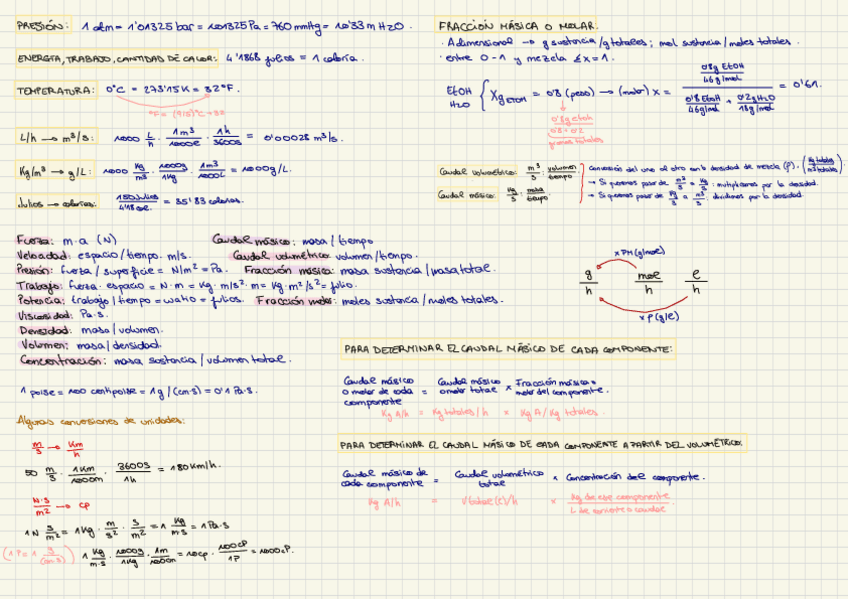 PRESIÓN: 1 atm = 1'01325 bar = 101325 Pa = 760 mmHg = 10'33 m H2O.
ENERGÍA, TRABAJO, CANTIDAD DE CALOR: 4'1868 julios = 1 caloría.
TEMPERATURA: 0°C = 273'15K = 32°F.
°F = (9/5)°C+32
L/h → m³/s: 1000 L/h · 1m³/1000L · 1h/3600s = 0'00028 m³/s.
Kg/m³ → g/L: 1000 Kg/m³ · 1000g/1Kg · 1m³/1000L = 1000g/L.
Julios → calorías: 150 Julios/4'18 = 35'83 calorías.
FRACCIÓN MÁSICA O MOLAR.
· Adimensional → g sustancia/g totales; mol sustancia/moles totales.
· entre 0-1 y mezcla Σx=1.
EtOH
H2O
{ Xg EtOH = 0'8 (peso) → (molar) x = (0'8g EtOH / 46g/mol) / (0'8 EtOH / 46g/mol + 0'2g H2O / 18g/mol) = 0'61.
0'8g etoh
0'8+0'2
gramos totales
Caudal volumétrico: m³/s : volumen/tiempo
Caudal másico: Kg/s : masa/tiempo
Conversión del uno al otro con la densidad de mezcla (ρ). (Kg totales/m³ totales)
→ Si queremos pasar de m³/s a Kg/s: multiplicamos por la densidad.
→ Si queremos pasar de Kg/s a m³/s: dividimos por la densidad.
Fuerza: m·a (N)
Velocidad: espacio/tiempo. m/s.
Presión: fuerza/superficie = N/m² = Pa.
Trabajo: fuerza·espacio = N·m = Kg·m/s²·m = Kg·m²/s² = julio.
Potencia: trabajo/tiempo = watio = julio/s.
Viscosidad: Pa·s.
Densidad: masa/volumen.
Volumen: masa/densidad.
Concentración: masa sustancia/volumen total.
Caudal másico: masa/tiempo
Caudal volumétrico: volumen/tiempo.
Fracción másica: masa sustancia/masa total.
Fracción molar: moles sustancia/moles totales.
1 poise = 100 centipoise = 1g/(cm·s) = 0'1 Pa·s.
Algunas conversiones de unidades:
m/s → Km/h
50 m/s · 1Km/1000m · 3600s/1h = 180Km/h.
N·s/m² → cp
1N s/m² = 1Kg · m/s² · s/m² = 1 Kg/m·s = 1Pa·s
(1P = 1 g/(cm·s)) 1 Kg/m·s · 1000g/1Kg · 1m/100cm = 10cp · 100cP/1P = 1000cP.
xPM(g/mol)
g/h mol/h L/h
xρ(g/L)
PARA DETERMINAR EL CAUDAL MÁSICO DE CADA COMPONENTE:
Caudal másico o molar de cada componente = Caudal másico o molar total × Fracción másica o molar del componente.
Kg A/h = Kg totales/h × Kg A/Kg totales.
PARA DETERMINAR EL CAUDAL MÁSICO DE CADA COMPONENTE A PARTIR DEL VOLUMÉTRICO:
Caudal másico de cada componente = Caudal volumétrico total × Concentración del componente.
Kg A/h = V total (L)/h × Kg de ese componente / L de corriente o caudal